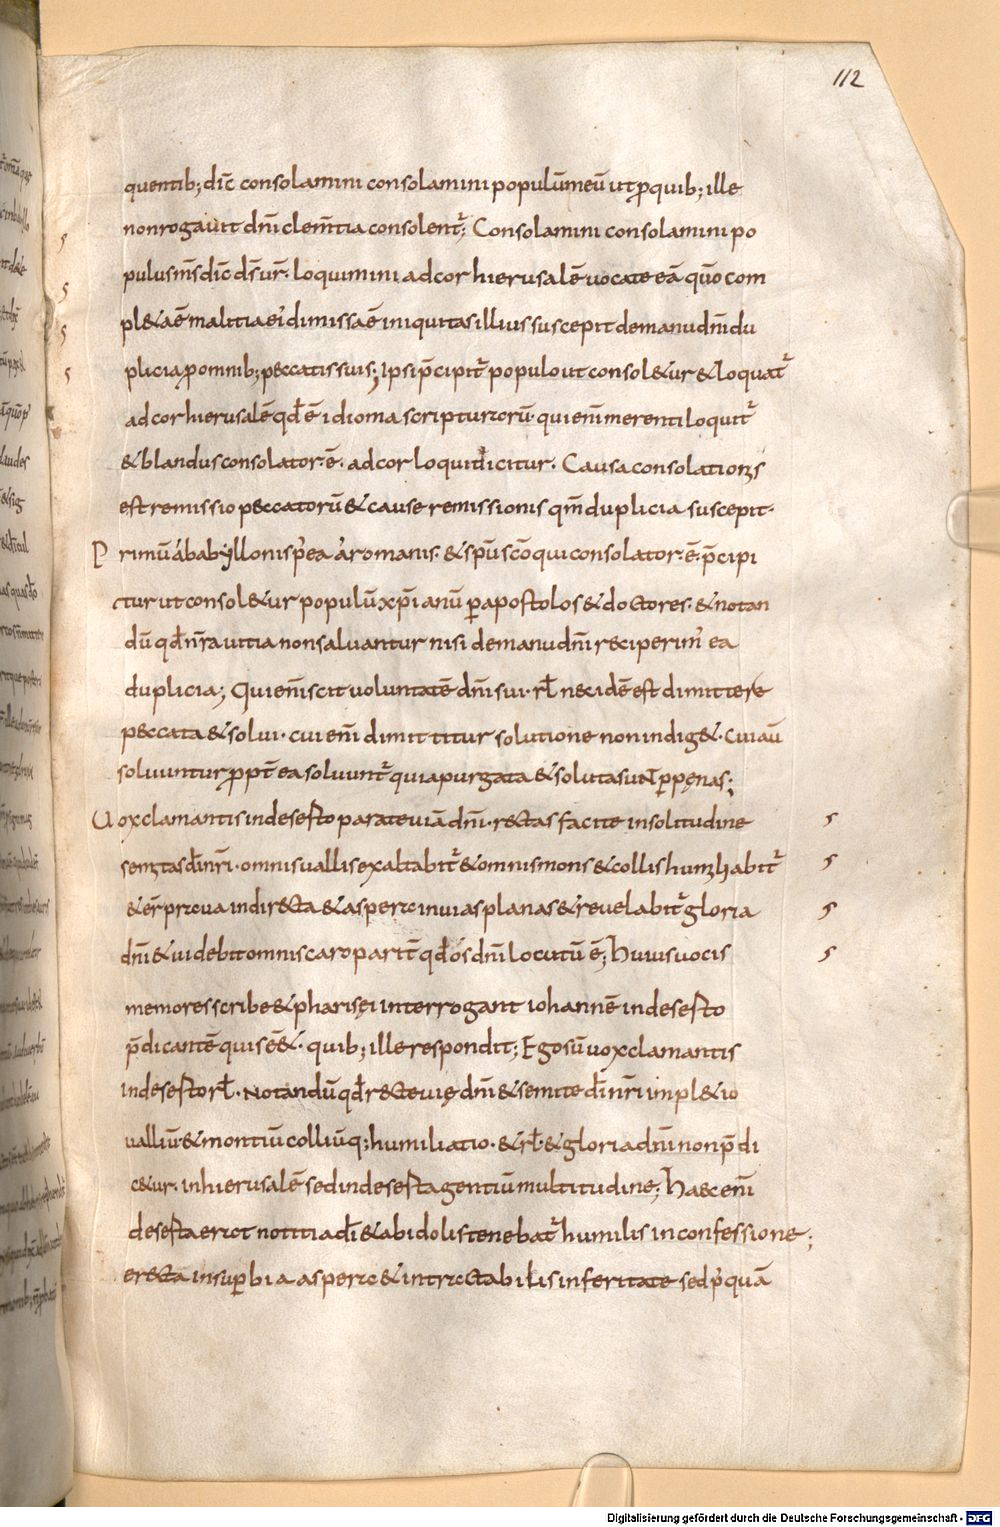 112
quentib; dīc consolamini consolamini populūmeū ut p quib; ille
nonrogauit dn̄i clem̄tia consolent᷑; Consolamini consolamini po
pulusm̄s dīc d̄s ur̄. loquimini ad cor hierusalē uocate eā qūo com
pl&aē malitia ei' dimissa ē iniquitas illius suscepit demanu dn̄i du
plicia p omnib; p&catis suis; Ipsi p̄cipit᷑ populo ut consol&ur & loquat᷑
ad cor hierusalē qđ ē idioma scripturarū. qui enī merenti loquit᷑
& blandus consolator ē. ad cor loqui dicitur. Causa consolationis
est remissio p&catorū & cause remissionis qm̄ duplicia suscepit.
Primū a babyllonis p'ea a romanis. & sp̄s sc̄o qui consolator ē. p̄cipi
tur ut consol&ur populū xp̄ianū p apostolos & doctores. & notan
dū qđ nr̄a uitia non saluantur nisi de manu dn̄i reciperim' ea
duplicia; Qui enī scit uoluntatē dn̄i sui. rł nec idē est dimittere
p&cata & solui. cui enī dimittitur solutione non indig&. Cui aū
soluuntur ppt̄ea soluunt᷑ quia purgata & soluta sunt p pęnas;
Uox clamantis in deserto parate uiā dn̄i. rectas facite in solitudine
semitas dī nr̄i. omnis uallis exaltabit᷑ & omnis mons & collis humiliabit᷑
& er̄ praua in directa & aspera in uias planas & reuelabit᷑ gloria
dn̄i & uidebit omnis caro parit᷑ qđ ós dn̄i locutū ē; Huius uocis
memores scribe & pharisęi interrogant iohannē in deserto
p̄dicantē quis ēē&. quib; ille respondit; Ego sū uox clamantis
in deserto rł. Notandū qđ recte uię dn̄i & semite dī nr̄i impl&io
talliū & montiū colliūq; humiliatio. & rł. & gloria dn̄i non p̄di
c&ur. in hierusalē sed in deserta gentiū multitudine; Haec enī
deserta erat notitia dī & ab idolis tenebat᷑ humilis in confessione;
erecta in supbia aspera & intractabilis in feritate sed p'quā
Digitalisierung gefördert durch die Deutsche Forschungsgemeinschaft - DFG